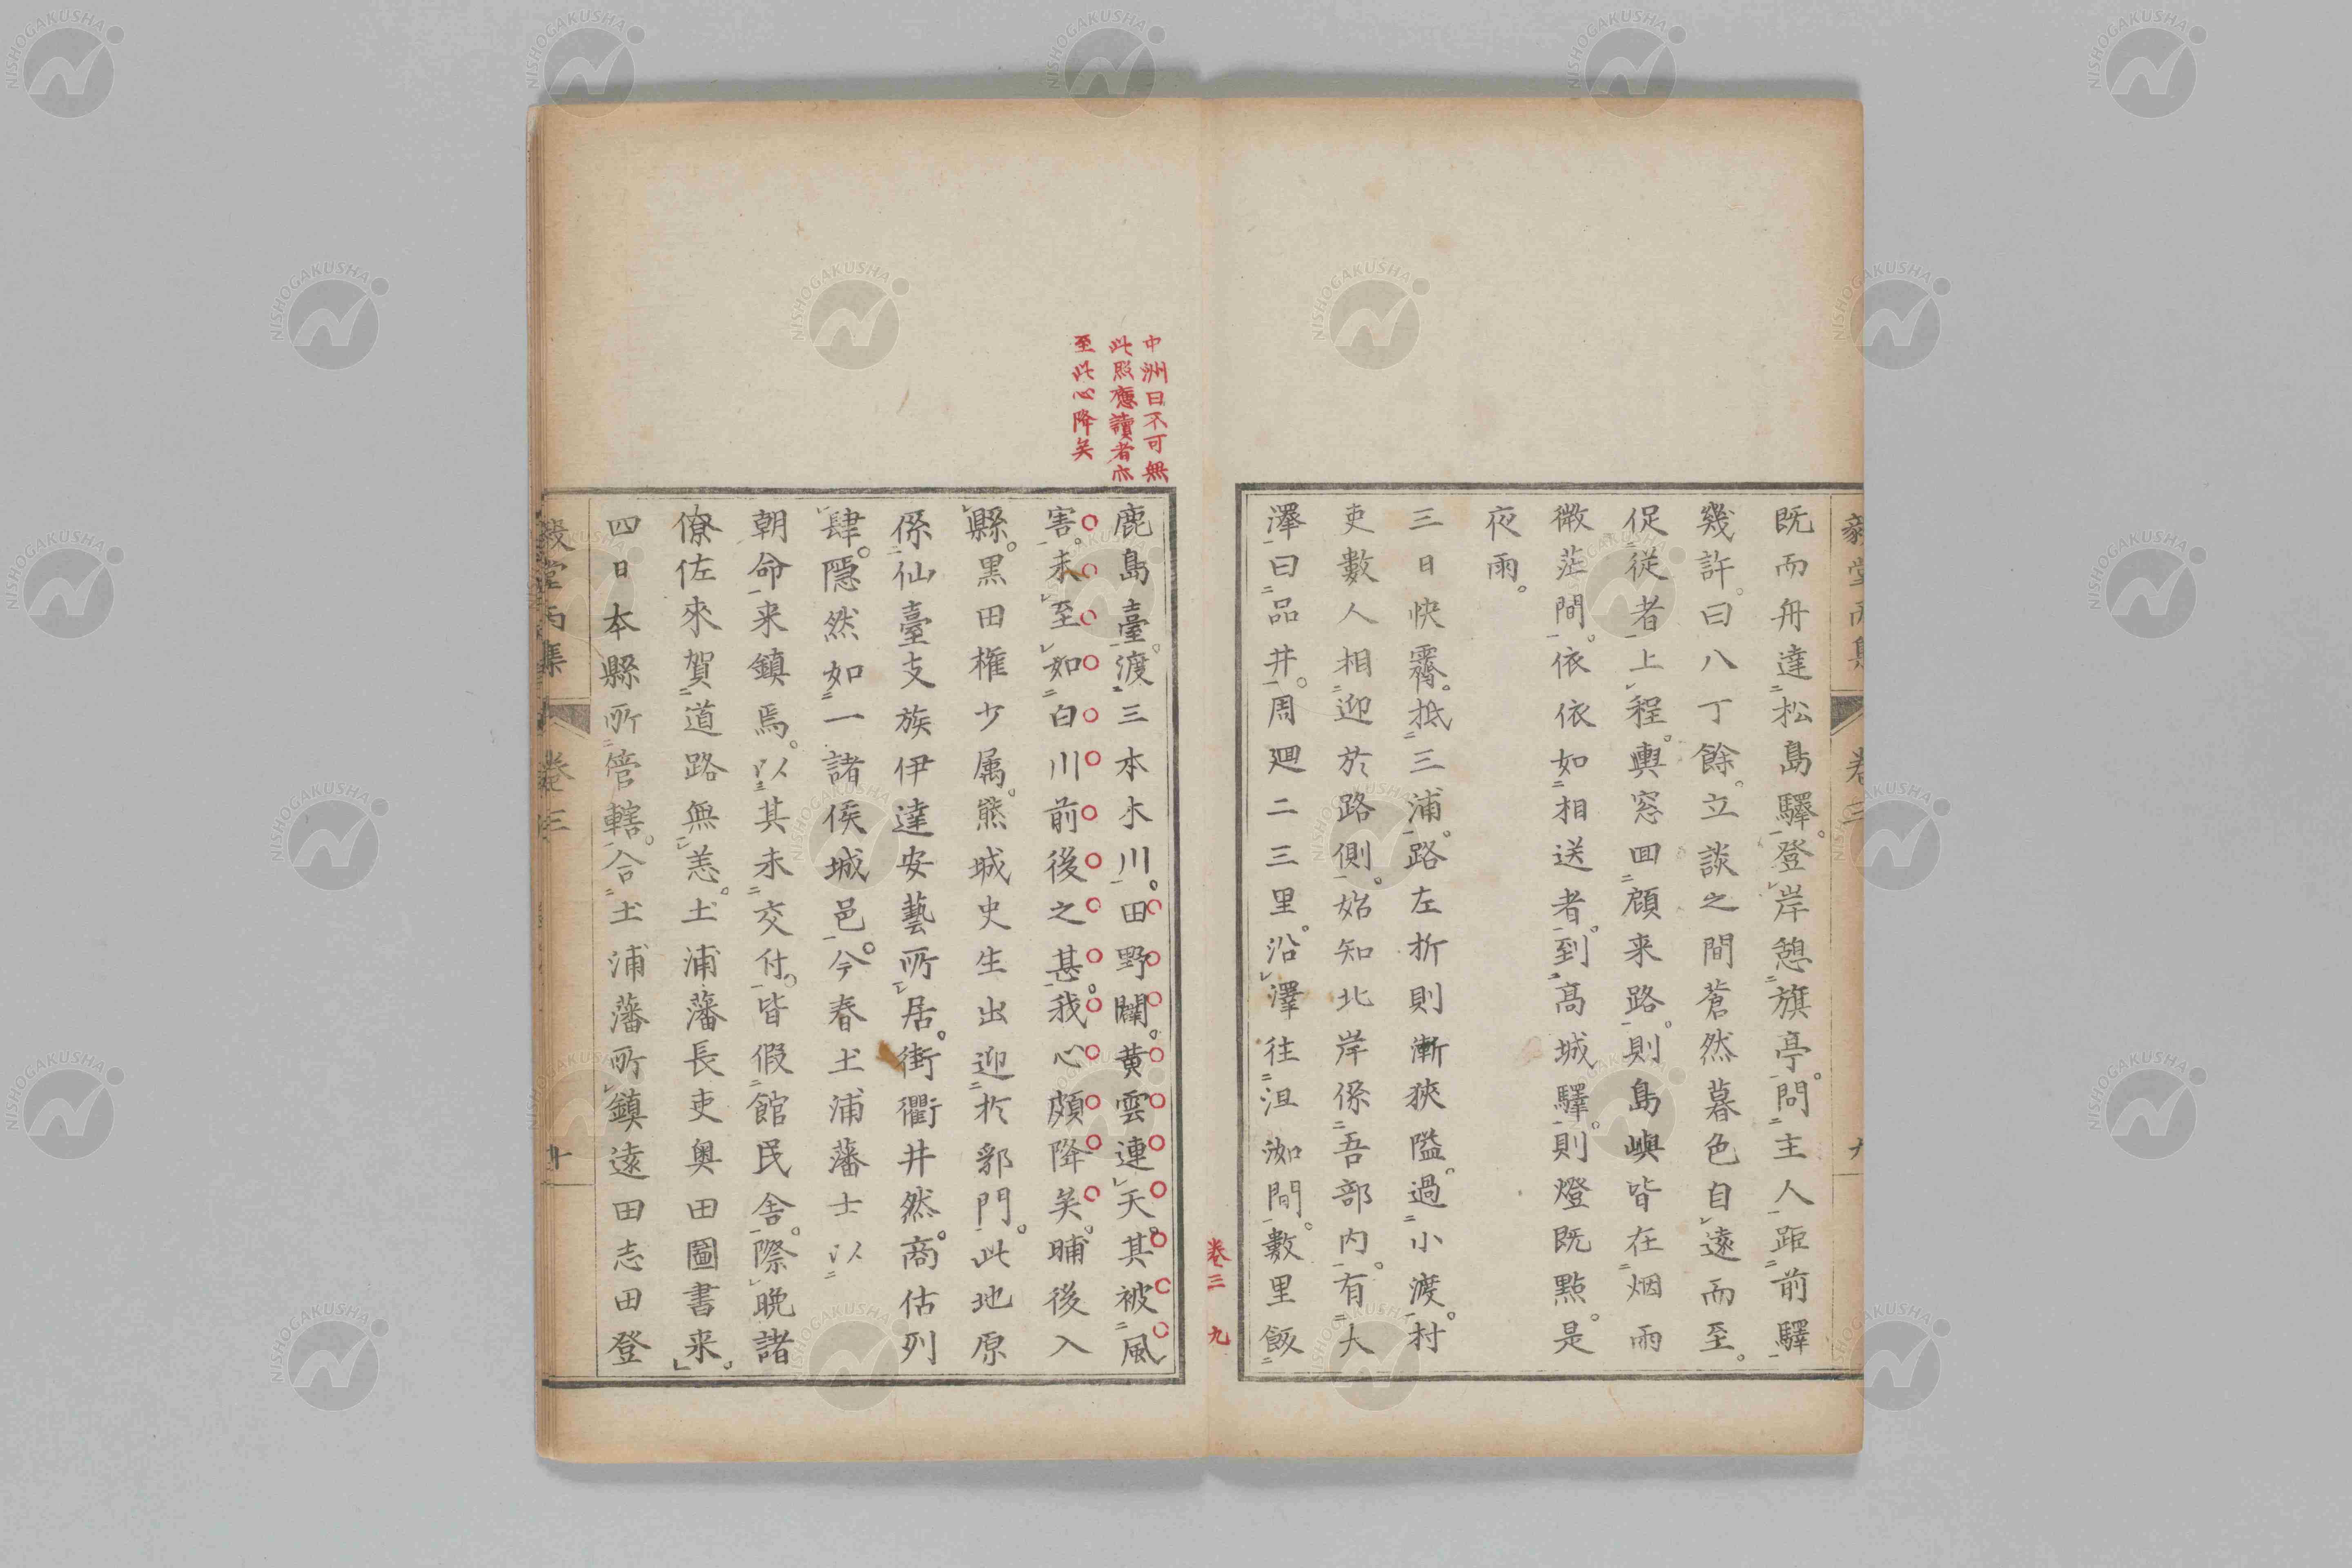 既而舟達松島驛。登岸憩旗亭。問主人距前驛
幾許。曰八丁餘。立談之間蒼然暮色自遠而至。
促従者上程。輿窓回顧来路。則島嶼皆在烟雨
微茫間。依依如相送者。到高城驛。則燈既點。是
夜雨。
三日快霽。抵三浦。路左折則漸狹隘。過小渡。村
吏數人相迎於路側。始知北岸係吾部内。有大
澤曰品井。周廻二三里。沿澤往沮洳間。數里飯
卷三 九
中洲曰不可無
此照應讀者亦
至此心降矣
鹿島臺。渡三本木川。田野闢。黄雲連天。其被風
害。未至如白川前後之甚。我心頗降矣。晡後入
縣。黒田権少属。熊城史生出迎於郭門。此地原
係仙臺支族伊達安藝所居。街衢井然。商估列
肆。隠然如一諸侯城邑。今春土浦藩士以
朝命来鎮焉。以其未交付。皆假館民舎。際晩諸
僚佐來賀道路無恙。土浦藩長吏奥田圖書来。
四日本縣所管轄。合土浦藩所鎮遠田志田登
卷三
十